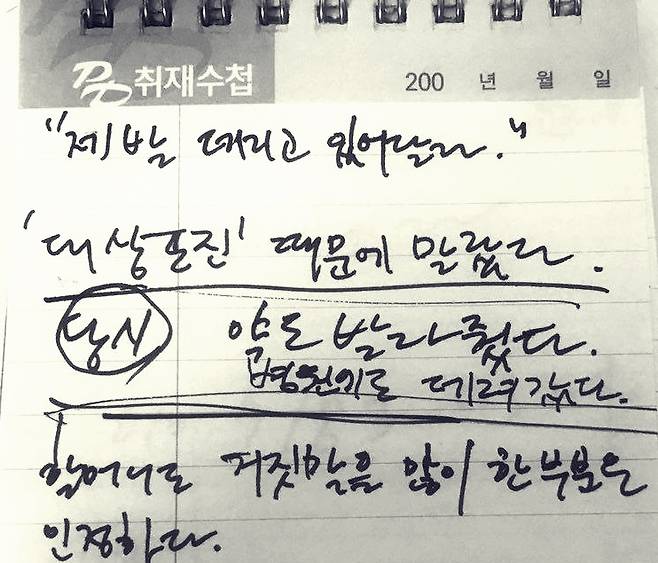 PD 취재수첩 200 년 월 일
"제발 데리고 있어달라."
'대상포진' 때문에 말랐다.
당시 약도 발라줬다.
병원에도 데려갔다.
할머니도 거짓말을 많이 한 부분은
인정하다.